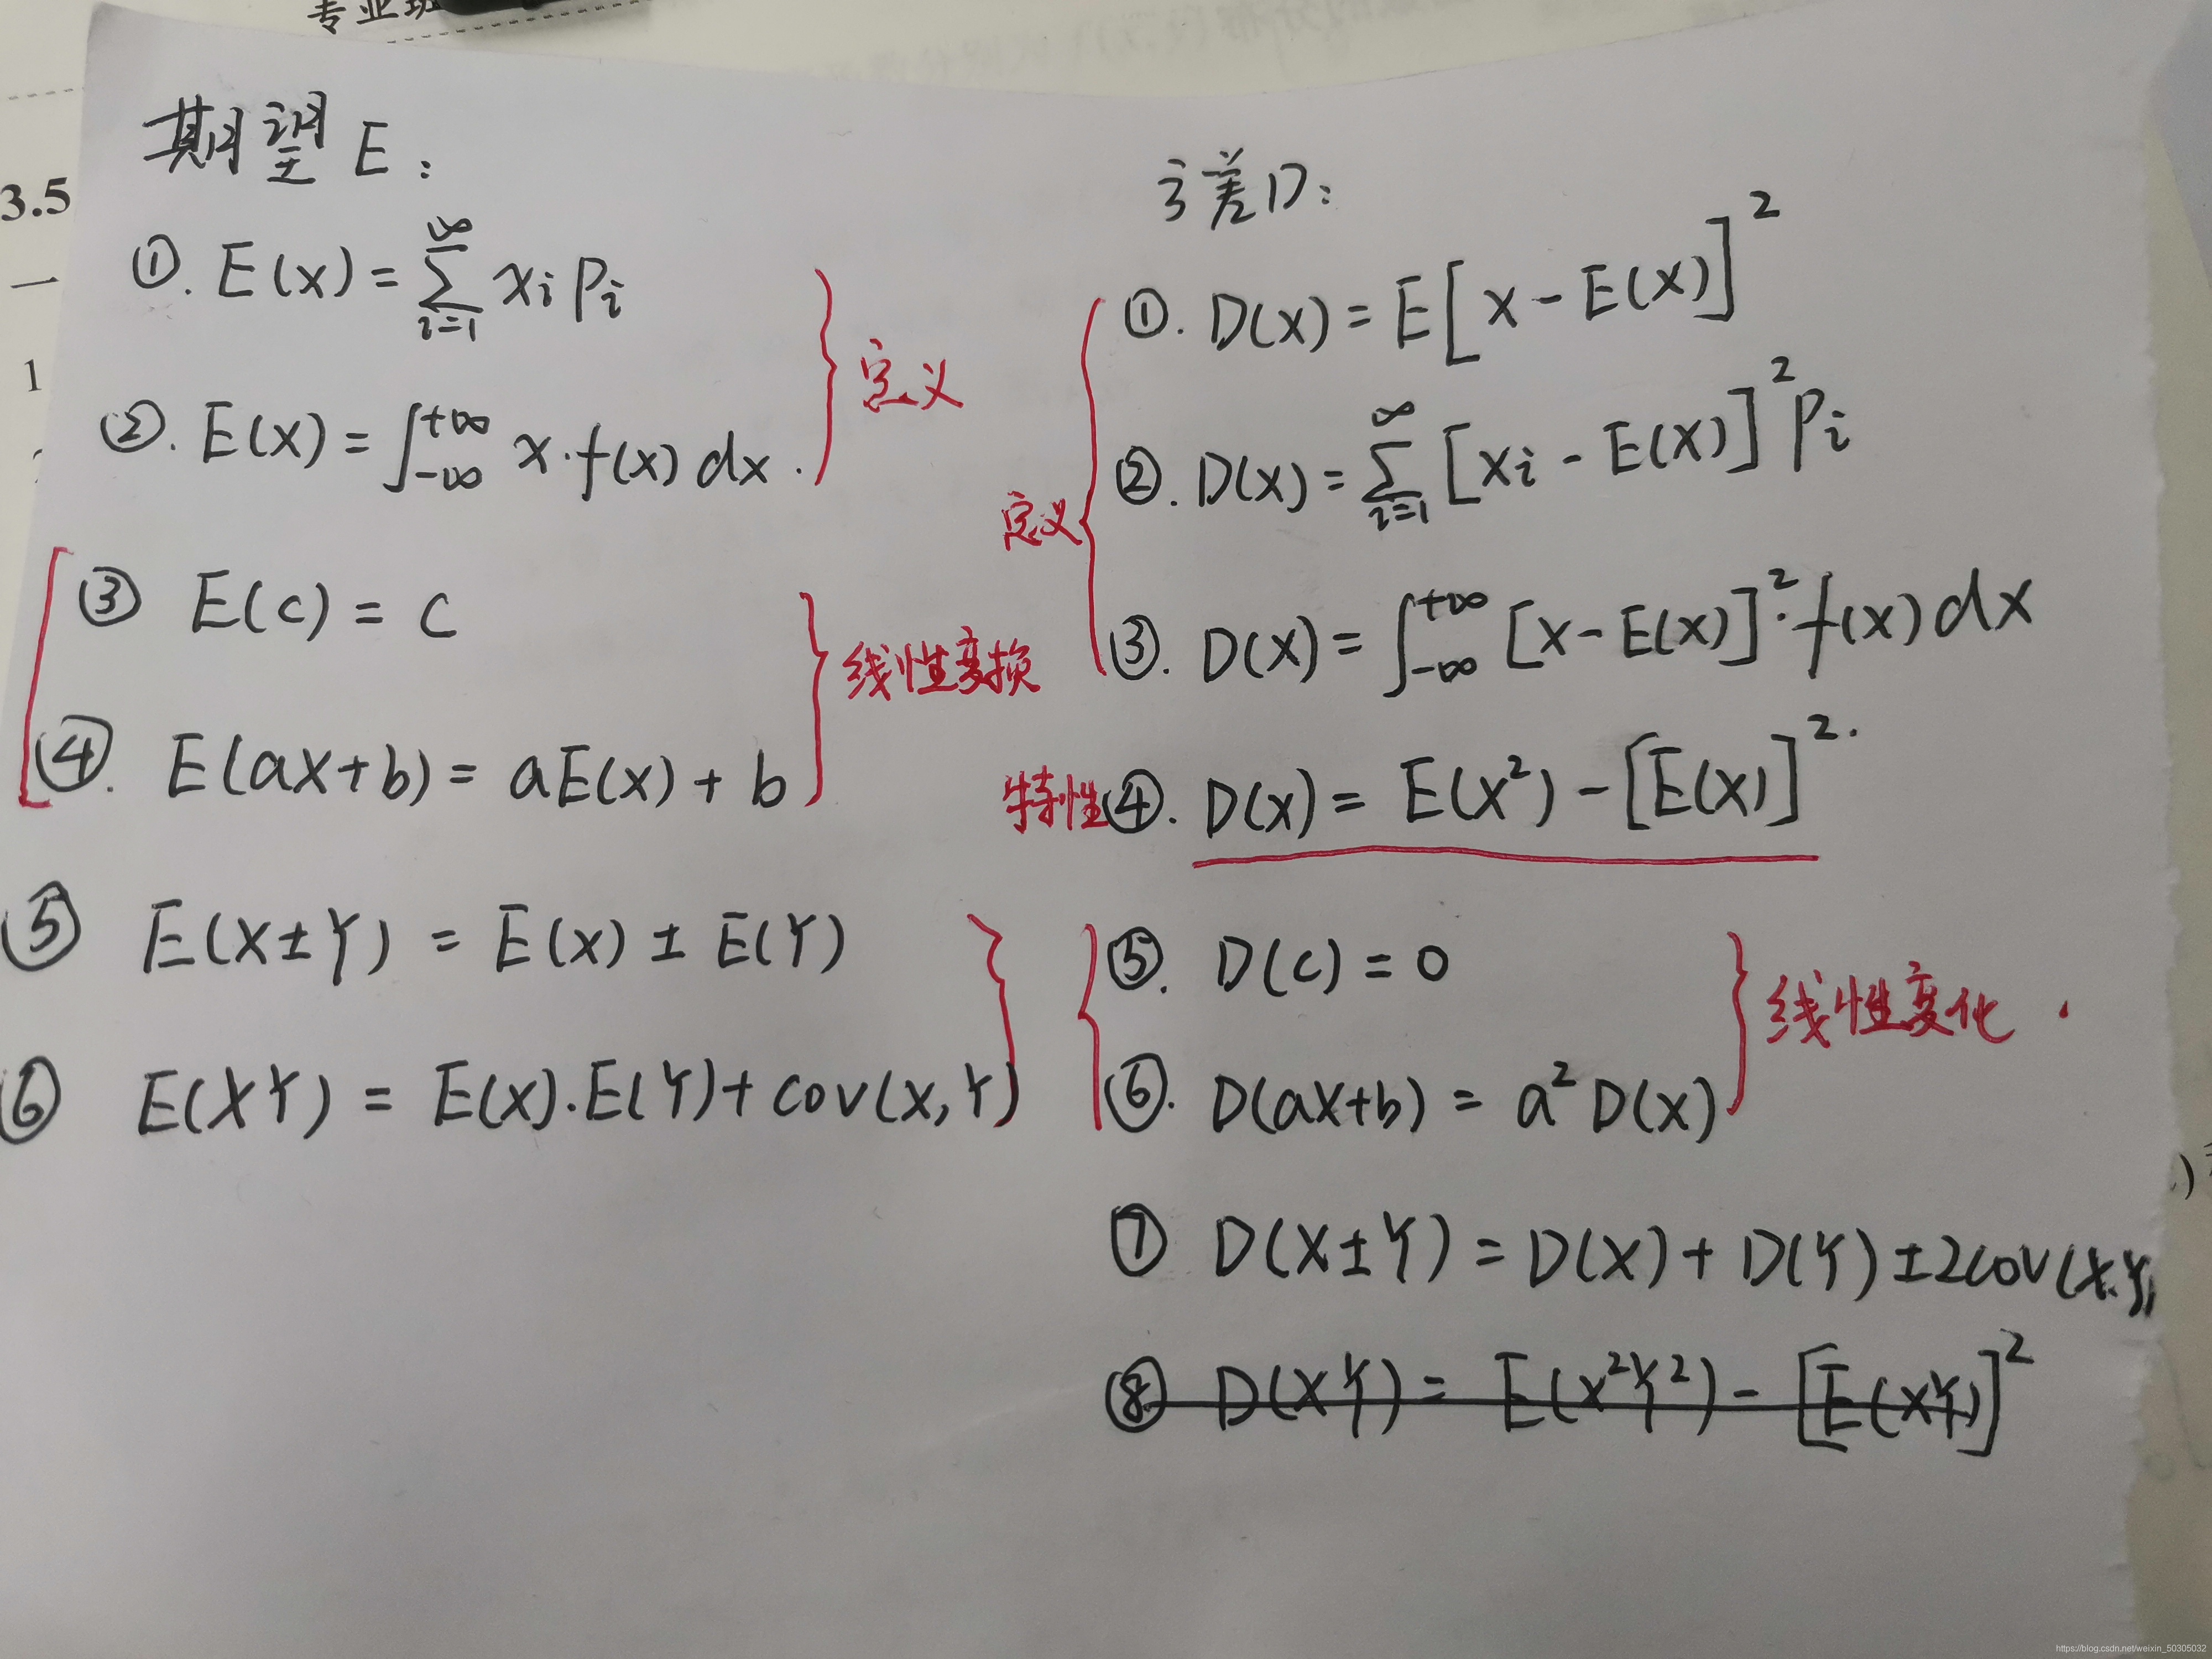 专业班
3.5
一
1
期望 E：
①. E(X) = ∑_{i=1}^{∞} xi Pi
②. E(X) = ∫_{-∞}^{+∞} x·f(x) dx.
定义
③ E(c) = c
④. E(aX+b) = aE(X) + b
线性变换
⑤ E(X±Y) = E(X) ± E(Y)
⑥ E(XY) = E(X)·E(Y) + cov(X,Y)
方差D：
①. D(X) = E[X - E(X)]²
②. D(X) = ∑_{i=1}^{∞} [xi - E(X)]² Pi
③. D(X) = ∫_{-∞}^{+∞} [x - E(X)]²·f(x) dx
定义
特性④. D(X) = E(X²) - [E(X)]².
⑤. D(c) = 0
⑥. D(aX+b) = a² D(X)
线性变化.
⑦ D(X±Y) = D(X) + D(Y) ± 2cov(X.Y)
⑧ D(XY) = E(X²Y²) - [E(XY)]²
https://blog.csdn.net/weixin_50305032